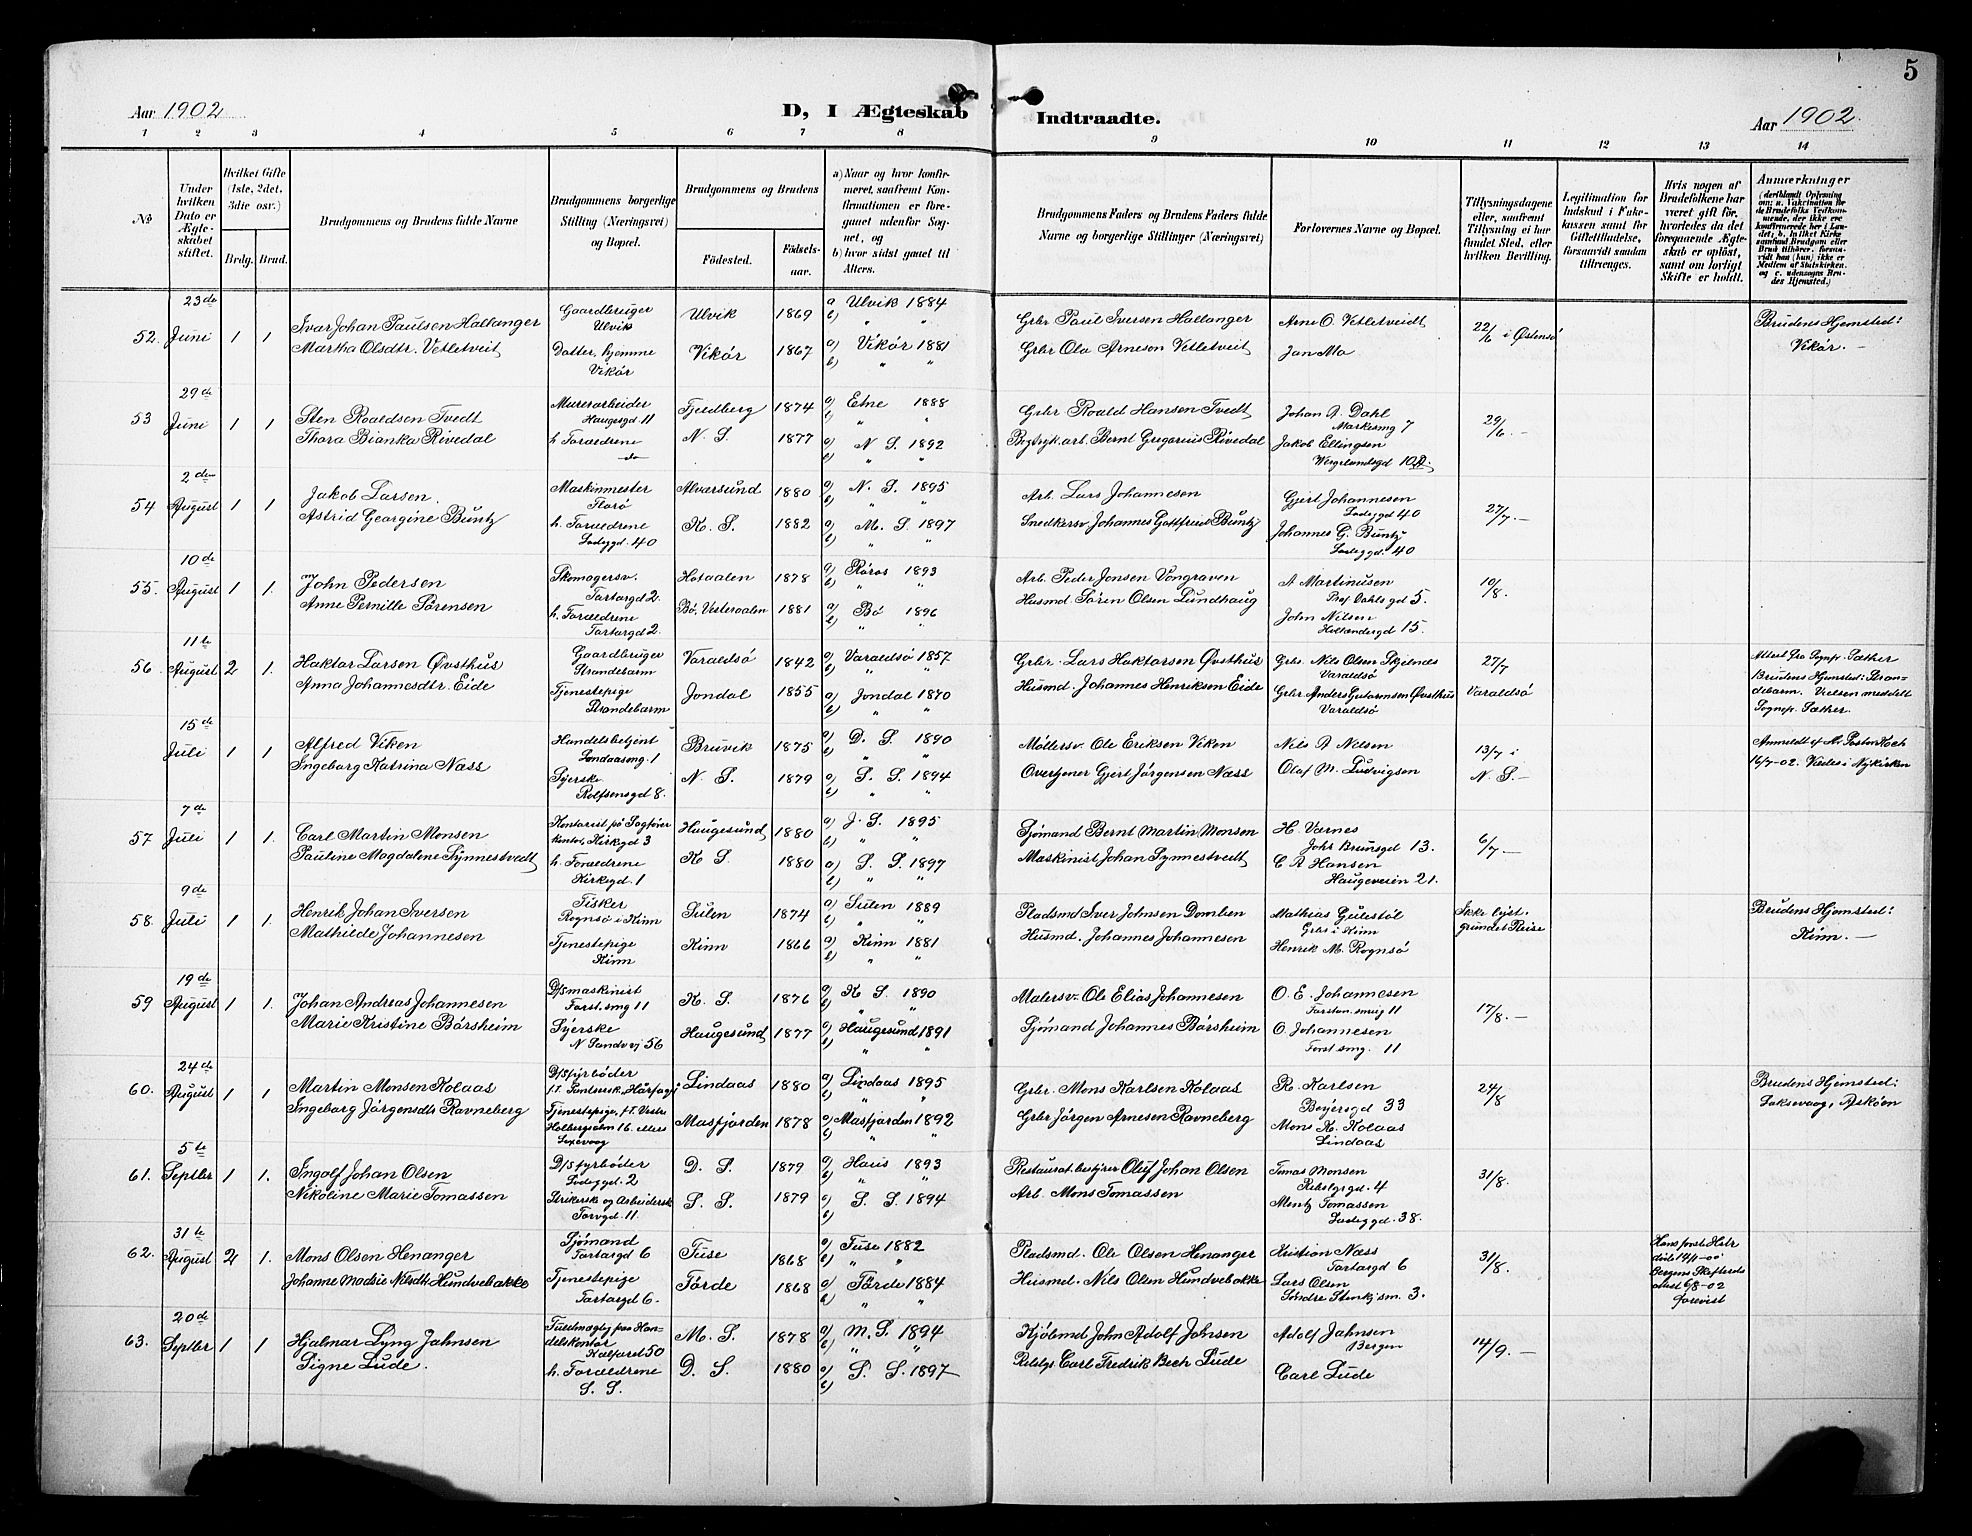 5
Aar 1902
D, I Ægteskab Indtraadte.
Aar 1902.
1 2 3 4 5 6 7 8 9 10 11 12 13 14
No
Under hvilken Dato er Ægteskabet stiftet.
Hvilket Gifte (1ste, 2det, 3die osv.)
Brdg. Brud.
Brudgommens og Brudens fulde Navne
Brudgommens borgerlige Stilling (Næringsvei) og Bopæl.
Brudgommens og Brudens
Födested.
Födselsaar.
a) Naar og hvor konfirmeret, saafremt Konfirmationen er foregaaet udenfor Sognet, og
b) hvor sidst gaaet til Alters.
Brudgommens Faders og Brudens Faders fulde Navne og borgerlige Stillinger (Næringsvei)
Forlovernes Navne og Bopæl.
Tillysningsdagene eller, saafremt Tillysning ei har fundet Sted, efter hvilken Bevilling.
Legitimation for Indskud i Enkekassen samt for Giftetilladelse, forsaavidt saadan tiltrænges.
Hvis nogen af Brudefolkene har været gift för, hvorledes da det foregaaende Ægteskab er oplöst, samt om lovligt Skifte er holdt.
Anmærkninger
(deriblandt Oplysning om: a. Vakcination for de Brudefolks Vedkommende, der ikke ere konfirmerede her i Landet; b. hvilket Kirkesamfund Brudgom eller Brud tilhörer, forsaavidt han (hun) ikke er Medlem af Statskirken, og c. udensogns Brudes Hjemsted.)
23de
52. Juni 1 1 Ivar Johan Paulsen Hallanger Gaardbruger Ulvik Ulvik 1869 a) Ulvik 1884 b) " " Grbr Paul Iversen Hallanger Arne O. Vetletveidt 22/6 i Østensø Brudens Hjemsted:
Martha Olsdtr. Vetletveit Datter, hjemme Vikør Vikør 1867 a) Vikør 1881 b) " " Grbr Ola Arnesen Vetletveit Jan Mo Vikør. —
29de
53 Juni 1 1 Sten Roaldsen Tvedt Murerarbeider Haugesgd 11 Fjeldberg 1874 a) Etne 1888 b) " " Grbr Roald Hansen Tvedt Johan A. Dahl Markesmg 7 29/6. —
Thora Bianka Rivedal h. Forældrene do N. S. 1877 a) N. S. 1892 b) " " Bernt Gregorius Rivedal Jakob Ellingsen Wergelandsgd 10
2den
54 August 1 1 Jakob Larsen. Maskinmester Florø Alversund 1880 a) N. S. 1895 b) " Arb. Lars Johannesen Gjert Johannesen Ladeggd 40 27/7. —
Astrid Georgine Buntz h. Forældrene Ladeggd. 40 K. S. 1882 a) M. S. 1897 b) " " Snedkersv. Johannes Gottfried Buntz Johannes G. Buntz Ladeggd. 40
10de
55. August 1 1. John Pedersen Skomagersv. Tartargd 2. Hotaalen 1878 a) Røros 1893 b) " " Arb. Peder Jonsen Vongraven A Martinusen Prof Dahls gd 5. 10/8.
Anne Pernille Sørensen h. Forældrene Tartargd 2. Bø, Vesteraalen 1881 a) Bø 1896 b) " " Husmd Søren Olsen Lundhaug John Nilsen Hollændergd 15.
11te
56 August 2 1. Haktor Larsen Øvsthus Gaardbruger Strandebarm Varaldsö 1842 a) Varaldsö 1857 b) " " Grbr. Lars Haktorsen Øvsthus Grbr. Nils Olsen Skjelnes Varaldsö 27/7 Attest fra Sognep. Sæther
Anna Johannesdtr. Eide Tjenestepige Strandebarm Jondal 1855 a) Jondal 1870 b) " " Husmd. Johannes Henriksen Eide Grbr Anders Gutormsen Øvsthus Varaldsö Varaldsö Brudens Hjemsted: Strandebarm. Vielsen meddelt Sognep. Sæther.
15de
Juli 1 1 Alfred Viken Handelsbetjent Landaasmg. 1 Bruvik 1875 a) D. S. 1890 b) " " Møllersv. Ole Eriksen Viken Nils A Nilsen 13/7 i Anmeldt af Hr. Pastor Koch
Ingeborg Katrina Næss Syerske Rolfsensgd 8. N. S. 1879 a) S. S. 1894 b) " " Overtjener Gjert Jørgensen Næss Olaf M. Ludvigsen N. S. — 16/7-02. Viedes i Nykirken
7de
57 Juli 1 1. Carl Martin Monsen Kontorist på Sagførerkontor, Kirkegd 3 Haugesund 1880 a) J. S. 1895 b) " " Sjømand Bernt Martin Monsen H. Varnes Johs Brunsgd 13. 6/7 —
Pauline Magdalene Synnestvedt h. Forældrene Kirkegd. 1 K S. 1880 a) S. S. 1897 b) " " Maskinist Johan Synnestvedt C A Hansen Haugeveien 21.
9de
58. Juli 1 1 Henrik Johan Iversen Fisker Rognsö i Kinn Sulen 1874 a) Sulen 1889 b) " " Pladsmd Iver Johnsen Domben Mathias Gulestöl Grbr i Kinn Ikke lyst. Brudens Hjemsted:
Mathilde Johannesen Tjenestepige Kinn Kinn 1866 a) Kinn 1881 b) " " Husmd. Johannes Johannesen Henrik M. Rognsö grundet Reise Kinn. —
19de
59 August 1 1. Johan Andreas Johannesen D/Smaskinist Forst.smg 11 K. S. 1876 a) K S. 1890 b) " " Malersv. Ole Elias Johannesen O. E. Johannesen Forstan.smug 11 17/8. —
Marie Kristine Børsheim Syerske N Sandv.v. 56 Haugesund 1877 a) Haugesund 1891 b) " " Sjømand Johannes Børsheim O. Johannesen Forst.smg. 11
24de
60. August 1 1 Martin Monsen Kolaas D/Sfyrbøder Lindaas 1880 a) Lindaas 1895 b) " " Grbr. Mons Karlsen Kolaas R. Karlsen Beyersgd 33 24/8 Brudens Hjemsted:
Ingeborg Jørgensdtr Ravneberg Tjenestepige, f.T. Vestre Holbergsalm 16. ellers Laxevaag Masfjorden 1878 a) Masfjorden 1892 b) " " Grbr Jørgen Arnesen Ravneberg Mons K. Kolaas Lindaas Laksevaag, Askøen
5te
61. Septbr 1 1. Ingolf Johan Olsen D/Sfyrbøder Ladeggd. 2 D. S. 1879 a) Haus 1893 b) " " Restaurat.bestyrer Oluf Johan Olsen Tomas Monsen 4 31/8.
Nikoline Marie Tomassen Strikersk og Arbeidersk Torvgd. 11. S. S. 1879 a) S. S. 1894 b) Arb. Mons Tomassen Mentz Tomassen Ladeggd. 38.
31te
62. August 2 1. Mons Olsen Henanger Sjømand Tartargd 6 Fuse 1868 a) Fuse 1882 b) " " Pladsmd. Ole Olsen Henanger Kristian Næss Tartargd 6 31/8. Hans første Hstr døde 19/1-00 Bergens Skifteretsattest 6/8-02 forevist
Johanne Madsie Nilsdtr Hundvebakke Tjenestepige Tartargd 6. Førde 1868 a) Førde 1884 b) " " Husmd. Nils Olsen Hundvebakke Lars Olsen Söndre 3.
20de
63. Septbr 1 1 Hjalmar Lyng Jahnsen Fuldmægtig paa Handelskontor Kalfaret 50 M. S. 1878 a) M. S. 1894 b) " " Kjöbmd John Adolf Johnsen Adolf Jahnsen Bergen 14/9. —
Signe Lude. h. Forældrene S. S. D. S 1880 a) S. S. 1897 b) Carl Fredrik Bech Lude Carl Lude